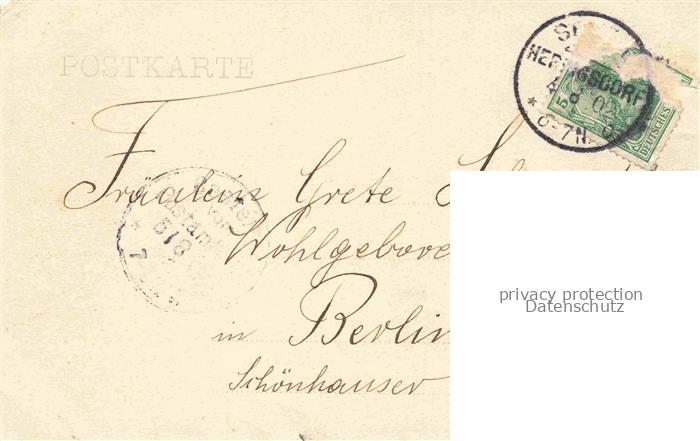 POSTKARTE
HERINGSDORF
4 8 02
* 6-7N.
5
DEUTSCHES
Fräulein Grete
Wohlgebore
in Berlin
Schönhauser
5/8
7
privacy protection
Datenschutz